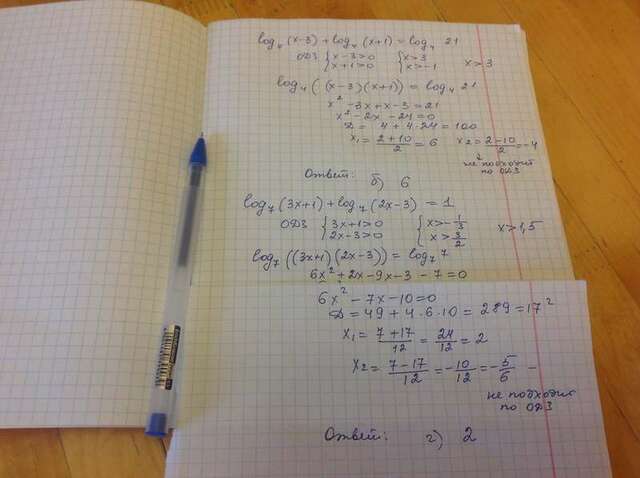 log₄(x-3)+log₄(x+1)=log₄ 21
ОДЗ { x-3>0 { x>3
x+1>0 x>-1 x>3
log₄((x-3)(x+1))=log₄ 21
x²-3x+x-3=21
x²-2x-24=0
D=4+4·24=100
x₁=(2+10)/2=6 x₂=(2-10)/2=-4
не подходит
по ОДЗ
Ответ: б) 6
log₇(3x+1)+log₇(2x-3)=1
ОДЗ { 3x+1>0 { x>-1/3
2x-3>0 x>3/2 x>1,5
log₇((3x+1)(2x-3))=log₇7
6x²+2x-9x-3-7=0
6x²-7x-10=0
D=49+4·6·10=289=17²
x₁=(7+17)/12=24/12=2
x₂=(7-17)/12=-10/12=-5/6 -
не подходит
по ОДЗ
Ответ: г) 2